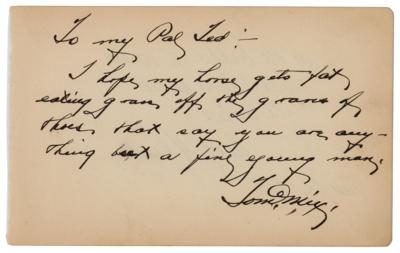 To my Pal, Ted:-
I hope my horse gets fat,
eating grass off the graves of
thoes that say you are any-
thing but a fine young man.
Tom Mix.